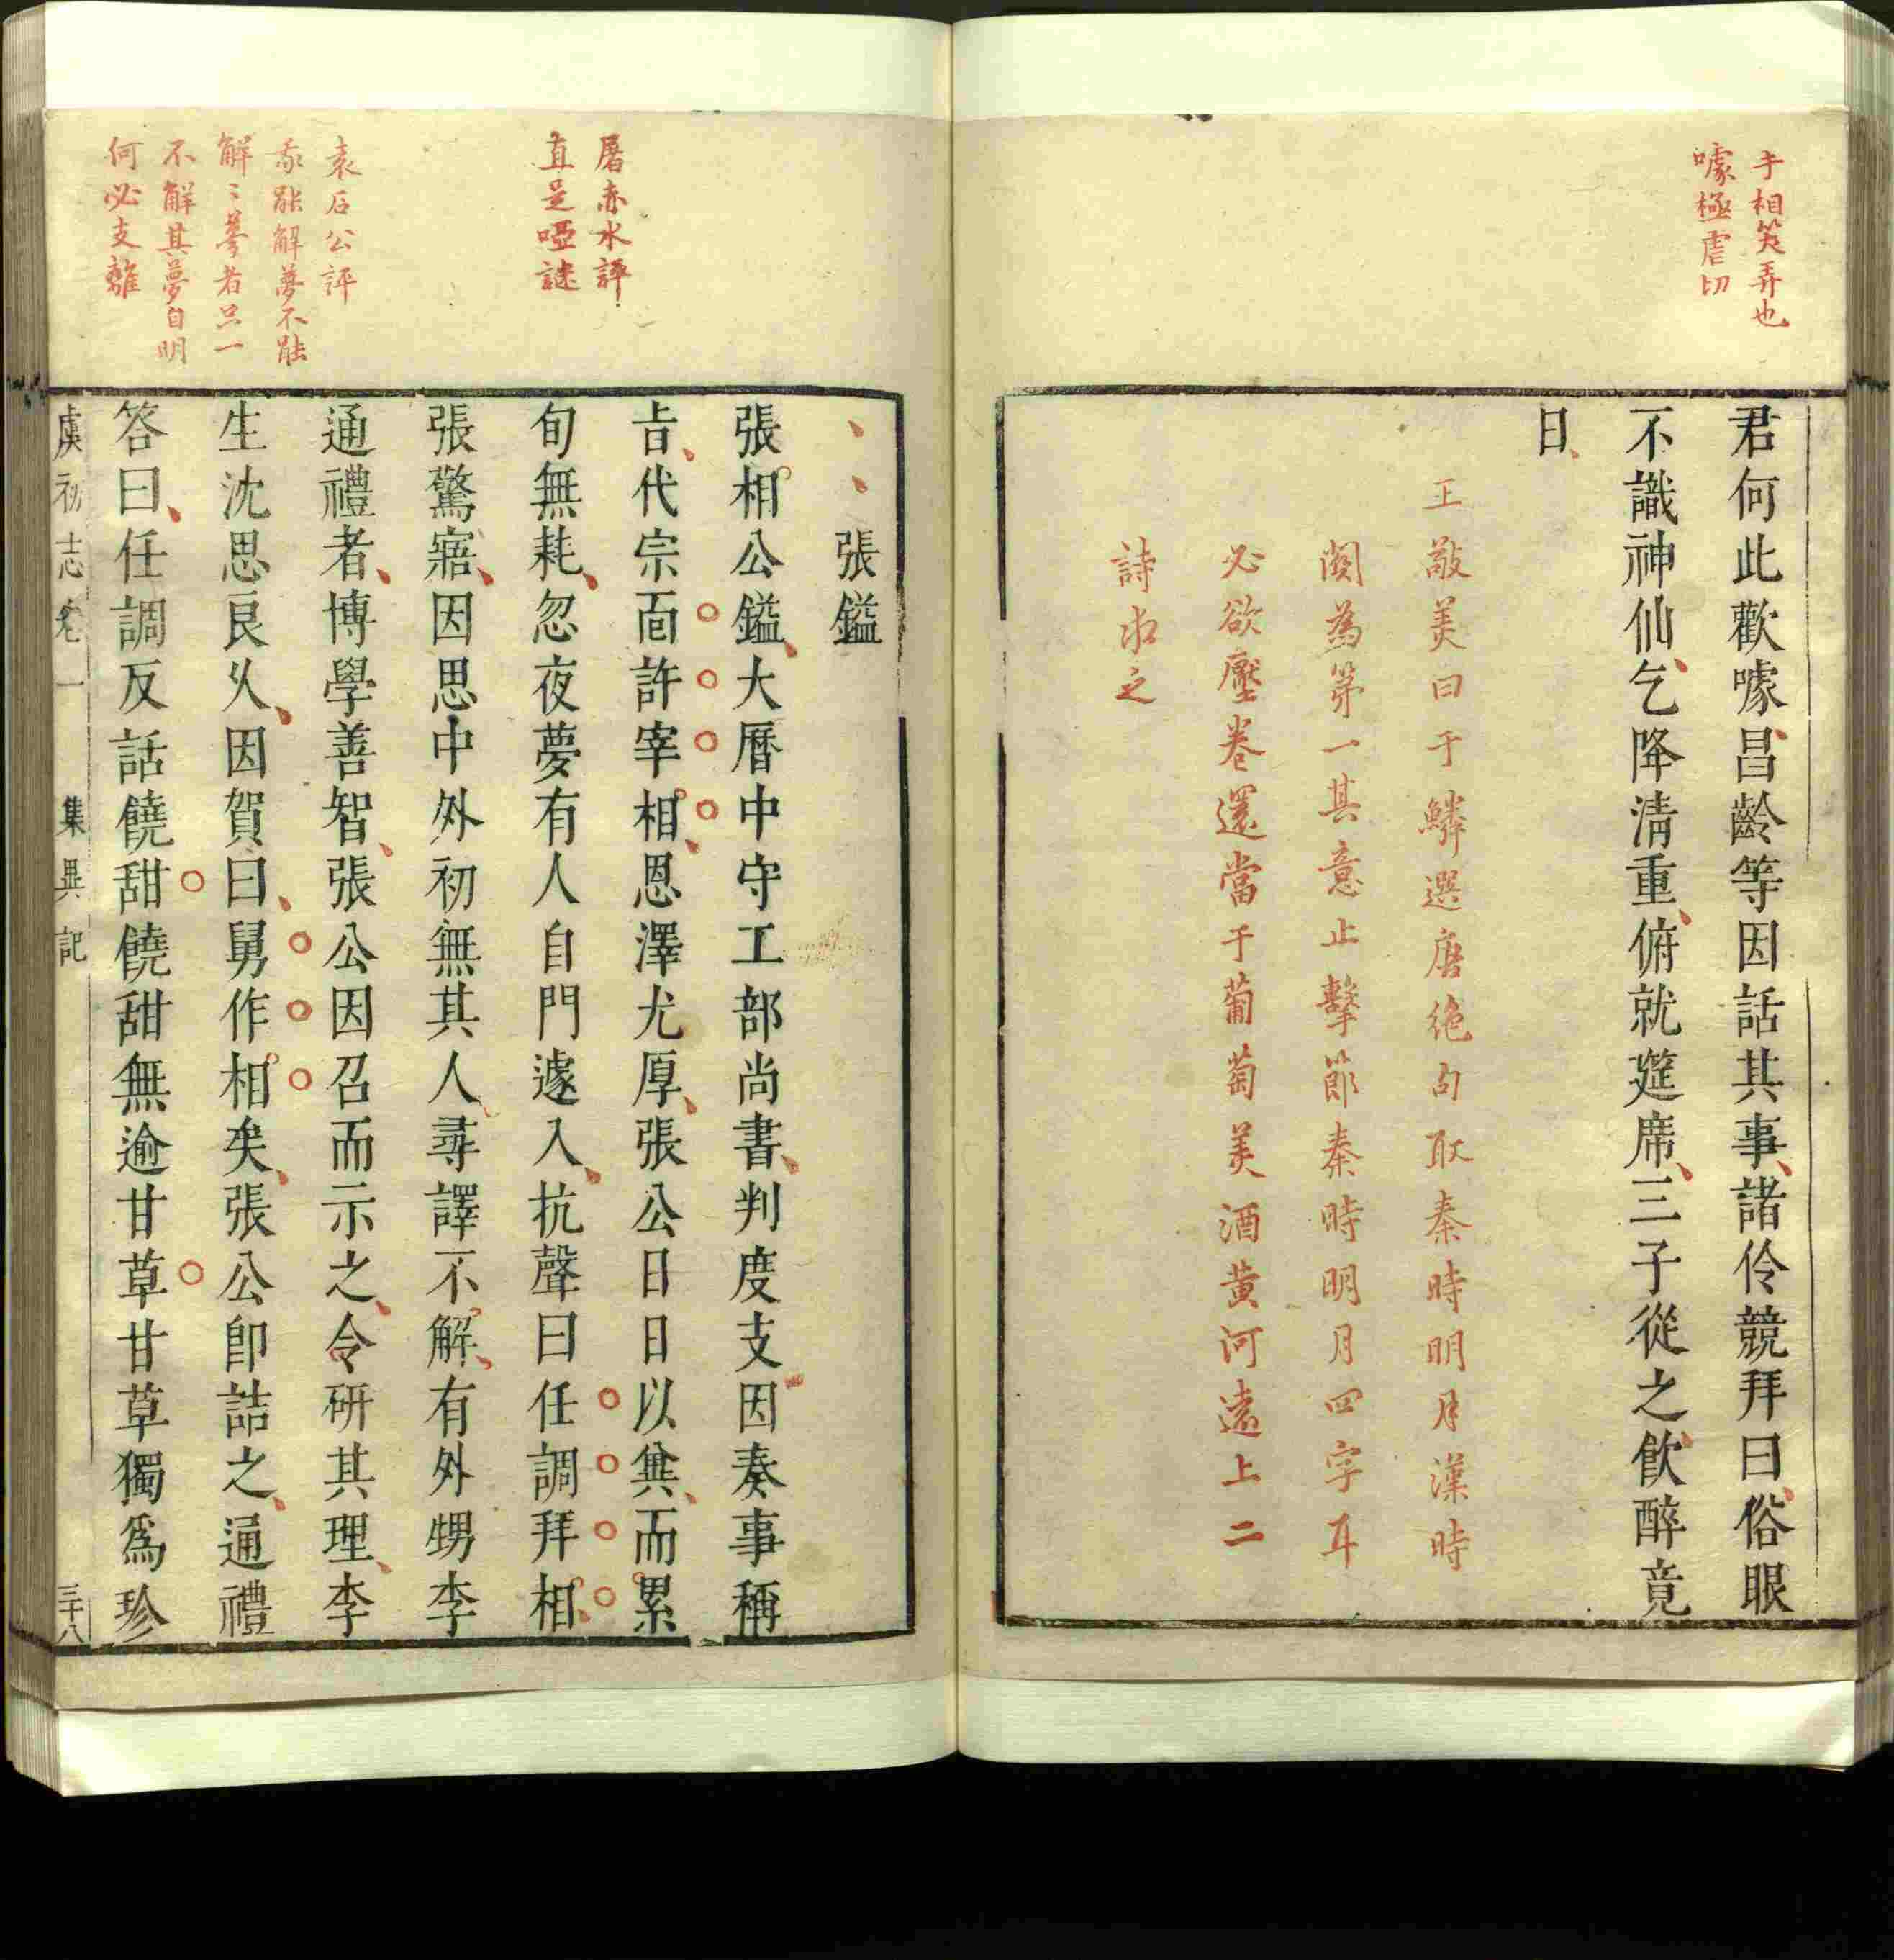 于相笑弄也
噱極虐切
君何此歡噱昌齡等因話其事諸伶競拜曰俗眼
不識神仙乞降清重俯就筵席三子從之飲醉竟
日
王敬美曰于鱗選唐絶句取秦時明月漢時
關為第一其意止擊節秦時明月四字耳
必欲壓卷還當于葡萄美酒黄河遠上二
詩求之
屠赤水評
直是啞謎
袁石公評
解夢不能
解〻夢者只一
不解其夢自明
何必支離
張鎰
張相公鎰大曆中守工部尚書判度支因奏事稱
旨代宗靣許宰相恩澤尤厚張公日日以兾而累
旬無耗忽夜夢有人自門遽入抗聲曰任調拜相
張驚寤因思中外初無其人尋譯不解有外甥李
通禮者博學善智張公因召而示之令研其理李
生沈思良久因賀曰舅作相矣張公卽詰之通禮
答曰任調反話饒甜饒甜無逾甘草甘草獨爲珍
虞初志卷一 集異記 三十八